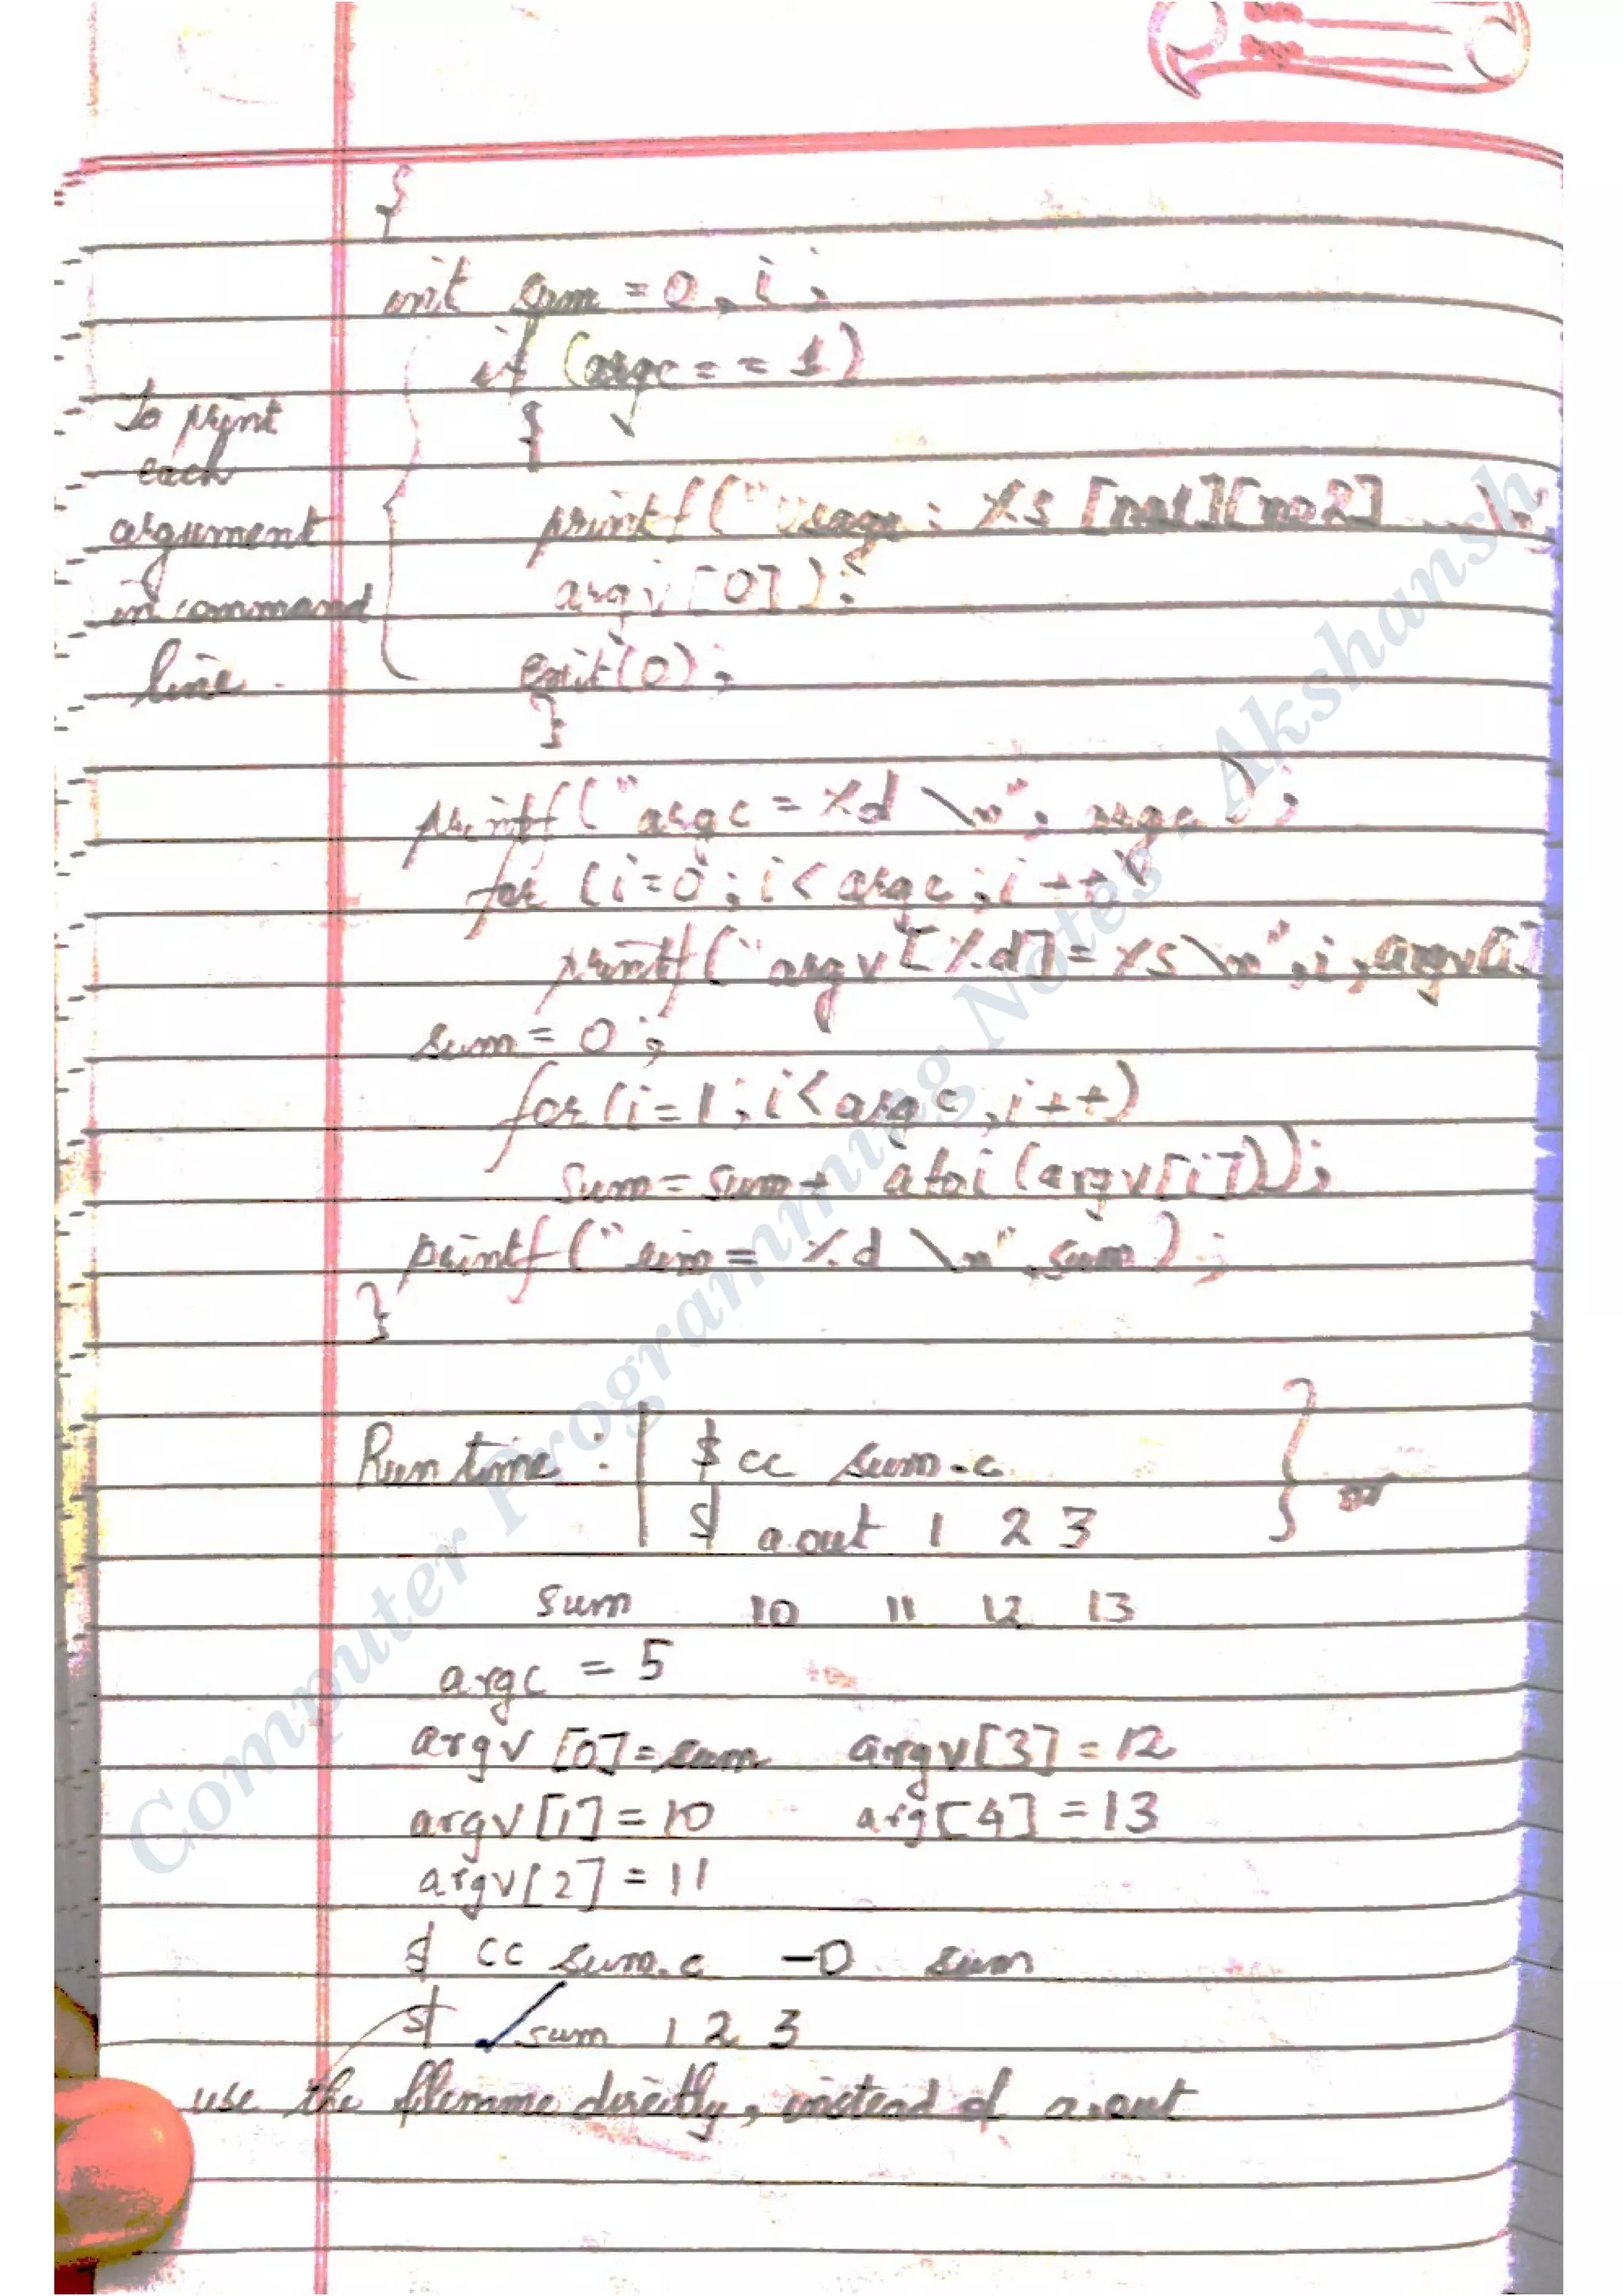 {
int sum = 0, i ;
if (argc = = 1)
{
To print
each
argument
in command
line.
printf ("usage : %s [no1][no2] ...\n
argv [0]) ;
exit(0) ;
}
printf (" argc = %d \n", argc ) ;
for (i=0 ; i< argc ; i ++)
printf (" argv [%d] = %s \n" , i , argv[i]
sum = 0 ;
for (i=1 ; i< argc , i ++)
sum = sum + atoi (argv[i]) ;
printf (" sum = %d \n" , sum ) ;
}
Run time : $ cc sum.c
$ a.out 1 2 3
sum 10 11 12 13
argc = 5
argv [0] = sum argv[3] = 12
argv [1] = 10 arg[4] = 13
argv[2] = 11
$ cc sum.c -O sum
$ ./sum 1 2 3
use the filename directly, instead of a.out
Computer Programming Notes Akshansh